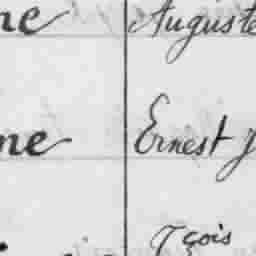 ne Auguste
ne Ernest J
Fçois